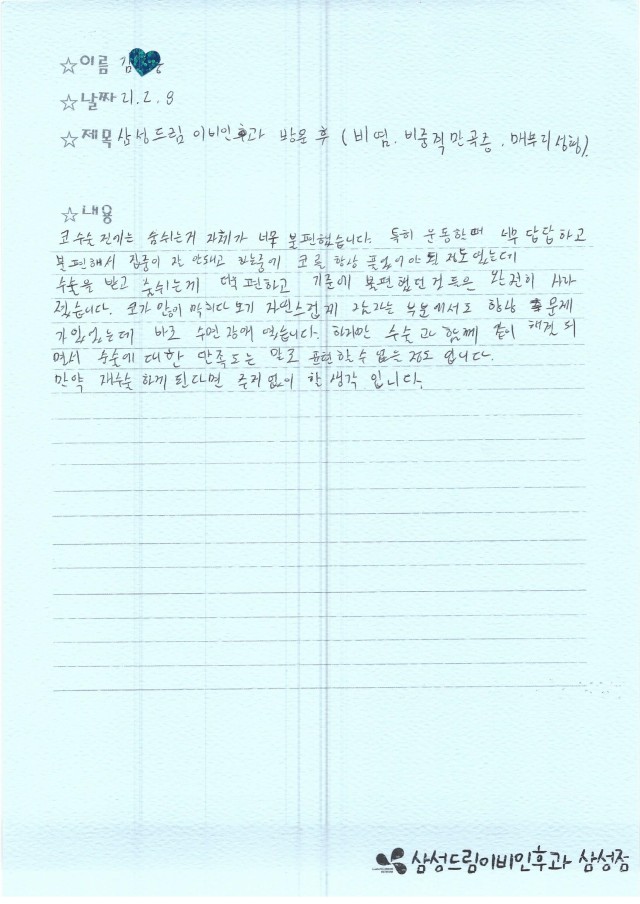 ☆이름 김
☆날짜 21.2.8
☆제목 삼성드림 이비인후과 방문 후 (비염. 비중격만곡증. 매부리성형).
☆내용
코수술 전에는 숨쉬는거 자체가 너무 불편했습니다. 특히 운동할때 너무 답답하고
불편해서 집중이 잘 안돼고 하는중에 코를 항상 풀었어야 될 정도 였는데
수술을 받고 숨쉬는게 편하고 기존에 불편했던 것들은 완전히 사라
졌습니다. 코가 많이 막히다 보니 자연스럽게 잠자는 부분에서도 항상 문제
가 있었는데 바로 수면 장애 였습니다. 하지만 수술과 함께 같이 해결 되
면서 수술에 대한 만족도는 말로 표현할 수 없는 정도 입니다.
만약 재수술 하게 된다면 주저 없이 할 생각 입니다.
삼성드림이비인후과 삼성점